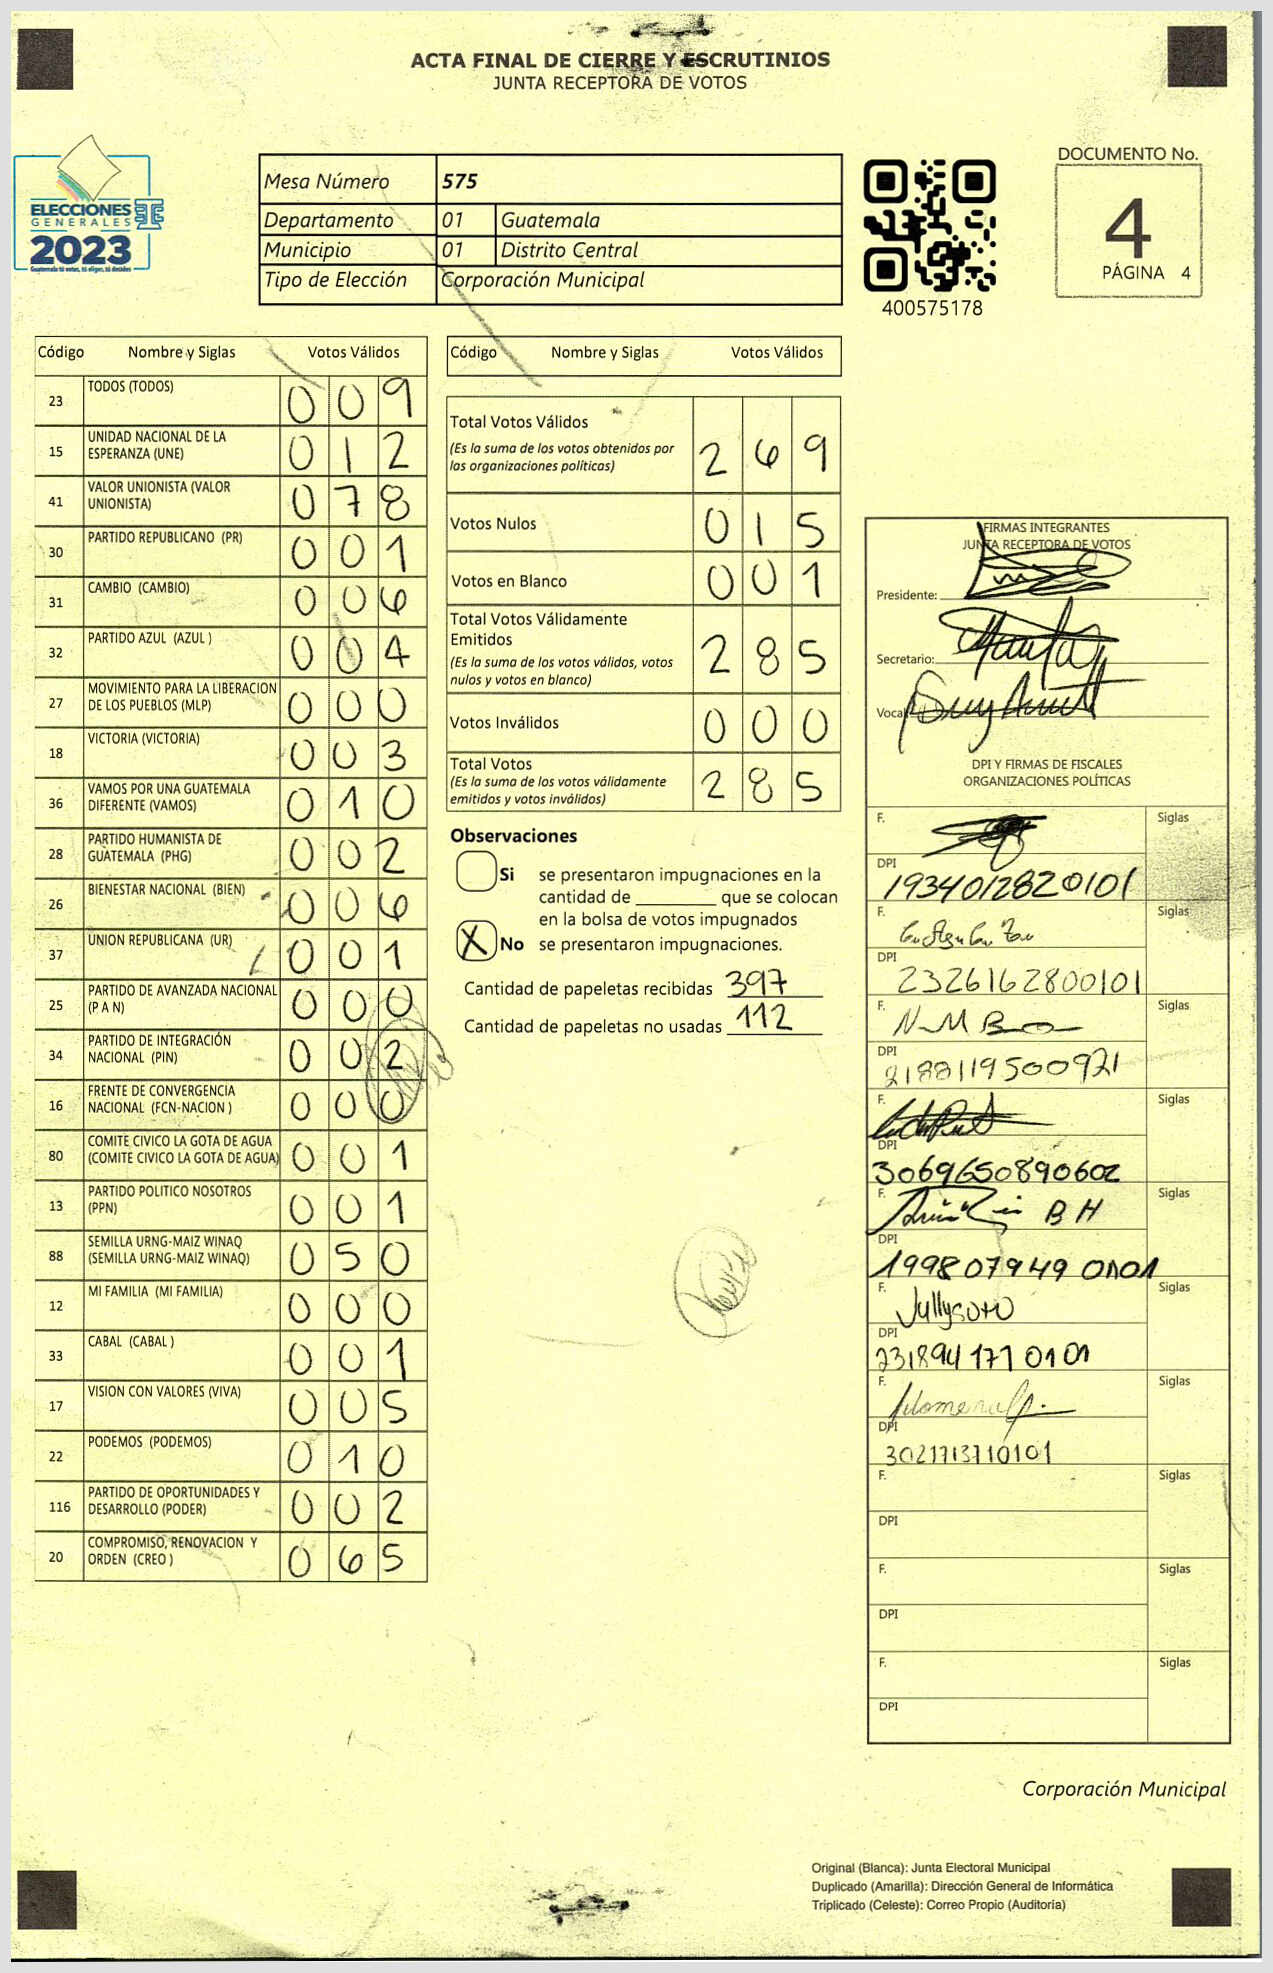 ACTA FINAL DE CIERRE Y ESCRUTINIOS
JUNTA RECEPTORA DE VOTOS
ELECCIONES
GENERALES
2023
Guatemala tú votas, tú eliges, tú decides
Mesa Número 575
Departamento 01 Guatemala
Municipio 01 Distrito Central
Tipo de Elección Corporación Municipal
400575178
DOCUMENTO No.
4
PÁGINA 4
Código Nombre y Siglas Votos Válidos
23 TODOS (TODOS) 0 0 9
15 UNIDAD NACIONAL DE LA
ESPERANZA (UNE) 0 1 2
41 VALOR UNIONISTA (VALOR
UNIONISTA) 0 7 8
30 PARTIDO REPUBLICANO (PR) 0 0 1
31 CAMBIO (CAMBIO) 0 0 6
32 PARTIDO AZUL (AZUL ) 0 0 4
27 MOVIMIENTO PARA LA LIBERACION
DE LOS PUEBLOS (MLP) 0 0 0
18 VICTORIA (VICTORIA) 0 0 3
36 VAMOS POR UNA GUATEMALA
DIFERENTE (VAMOS) 0 1 0
28 PARTIDO HUMANISTA DE
GUATEMALA (PHG) 0 0 2
26 BIENESTAR NACIONAL (BIEN) 0 0 6
37 UNION REPUBLICANA (UR) 0 0 1
25 PARTIDO DE AVANZADA NACIONAL
(P A N) 0 0 0
34 PARTIDO DE INTEGRACIÓN
NACIONAL (PIN) 0 0 2
16 FRENTE DE CONVERGENCIA
NACIONAL (FCN-NACION ) 0 0 0
80 COMITE CIVICO LA GOTA DE AGUA
(COMITE CIVICO LA GOTA DE AGUA) 0 0 1
13 PARTIDO POLITICO NOSOTROS
(PPN) 0 0 1
88 SEMILLA URNG-MAIZ WINAQ
(SEMILLA URNG-MAIZ WINAQ) 0 5 0
12 MI FAMILIA (MI FAMILIA) 0 0 0
33 CABAL (CABAL ) 0 0 1
17 VISION CON VALORES (VIVA) 0 0 5
22 PODEMOS (PODEMOS) 0 1 0
116 PARTIDO DE OPORTUNIDADES Y
DESARROLLO (PODER) 0 0 2
20 COMPROMISO, RENOVACION Y
ORDEN (CREO ) 0 6 5
Código Nombre y Siglas Votos Válidos
Total Votos Válidos
(Es la suma de los votos obtenidos por
las organizaciones políticas) 2 6 9
Votos Nulos 0 1 5
Votos en Blanco 0 0 1
Total Votos Válidamente
Emitidos
(Es la suma de los votos válidos, votos
nulos y votos en blanco) 2 8 5
Votos Inválidos 0 0 0
Total Votos
(Es la suma de los votos válidamente
emitidos y votos inválidos) 2 8 5
Observaciones
Si se presentaron impugnaciones en la
cantidad de ________ que se colocan
en la bolsa de votos impugnados
X No se presentaron impugnaciones.
Cantidad de papeletas recibidas 397
Cantidad de papeletas no usadas 112
FIRMAS INTEGRANTES
JUNTA RECEPTORA DE VOTOS
Presidente:
Secretario:
Vocal:
DPI Y FIRMAS DE FISCALES
ORGANIZACIONES POLÍTICAS
F. Siglas
DPI
1934012820101
F. Siglas
DPI
2326162800101
F. Siglas
DPI
2188119500921
F. Siglas
DPI
3069650890602
F. B H Siglas
DPI
1998079490101
F. Jullysoto Siglas
DPI
2318941710101
F. Siglas
DPI
3021713710101
F. Siglas
DPI
F. Siglas
DPI
F. Siglas
DPI
Corporación Municipal
Original (Blanca): Junta Electoral Municipal
Duplicado (Amarilla): Dirección General de Informática
Triplicado (Celeste): Correo Propio (Auditoría)